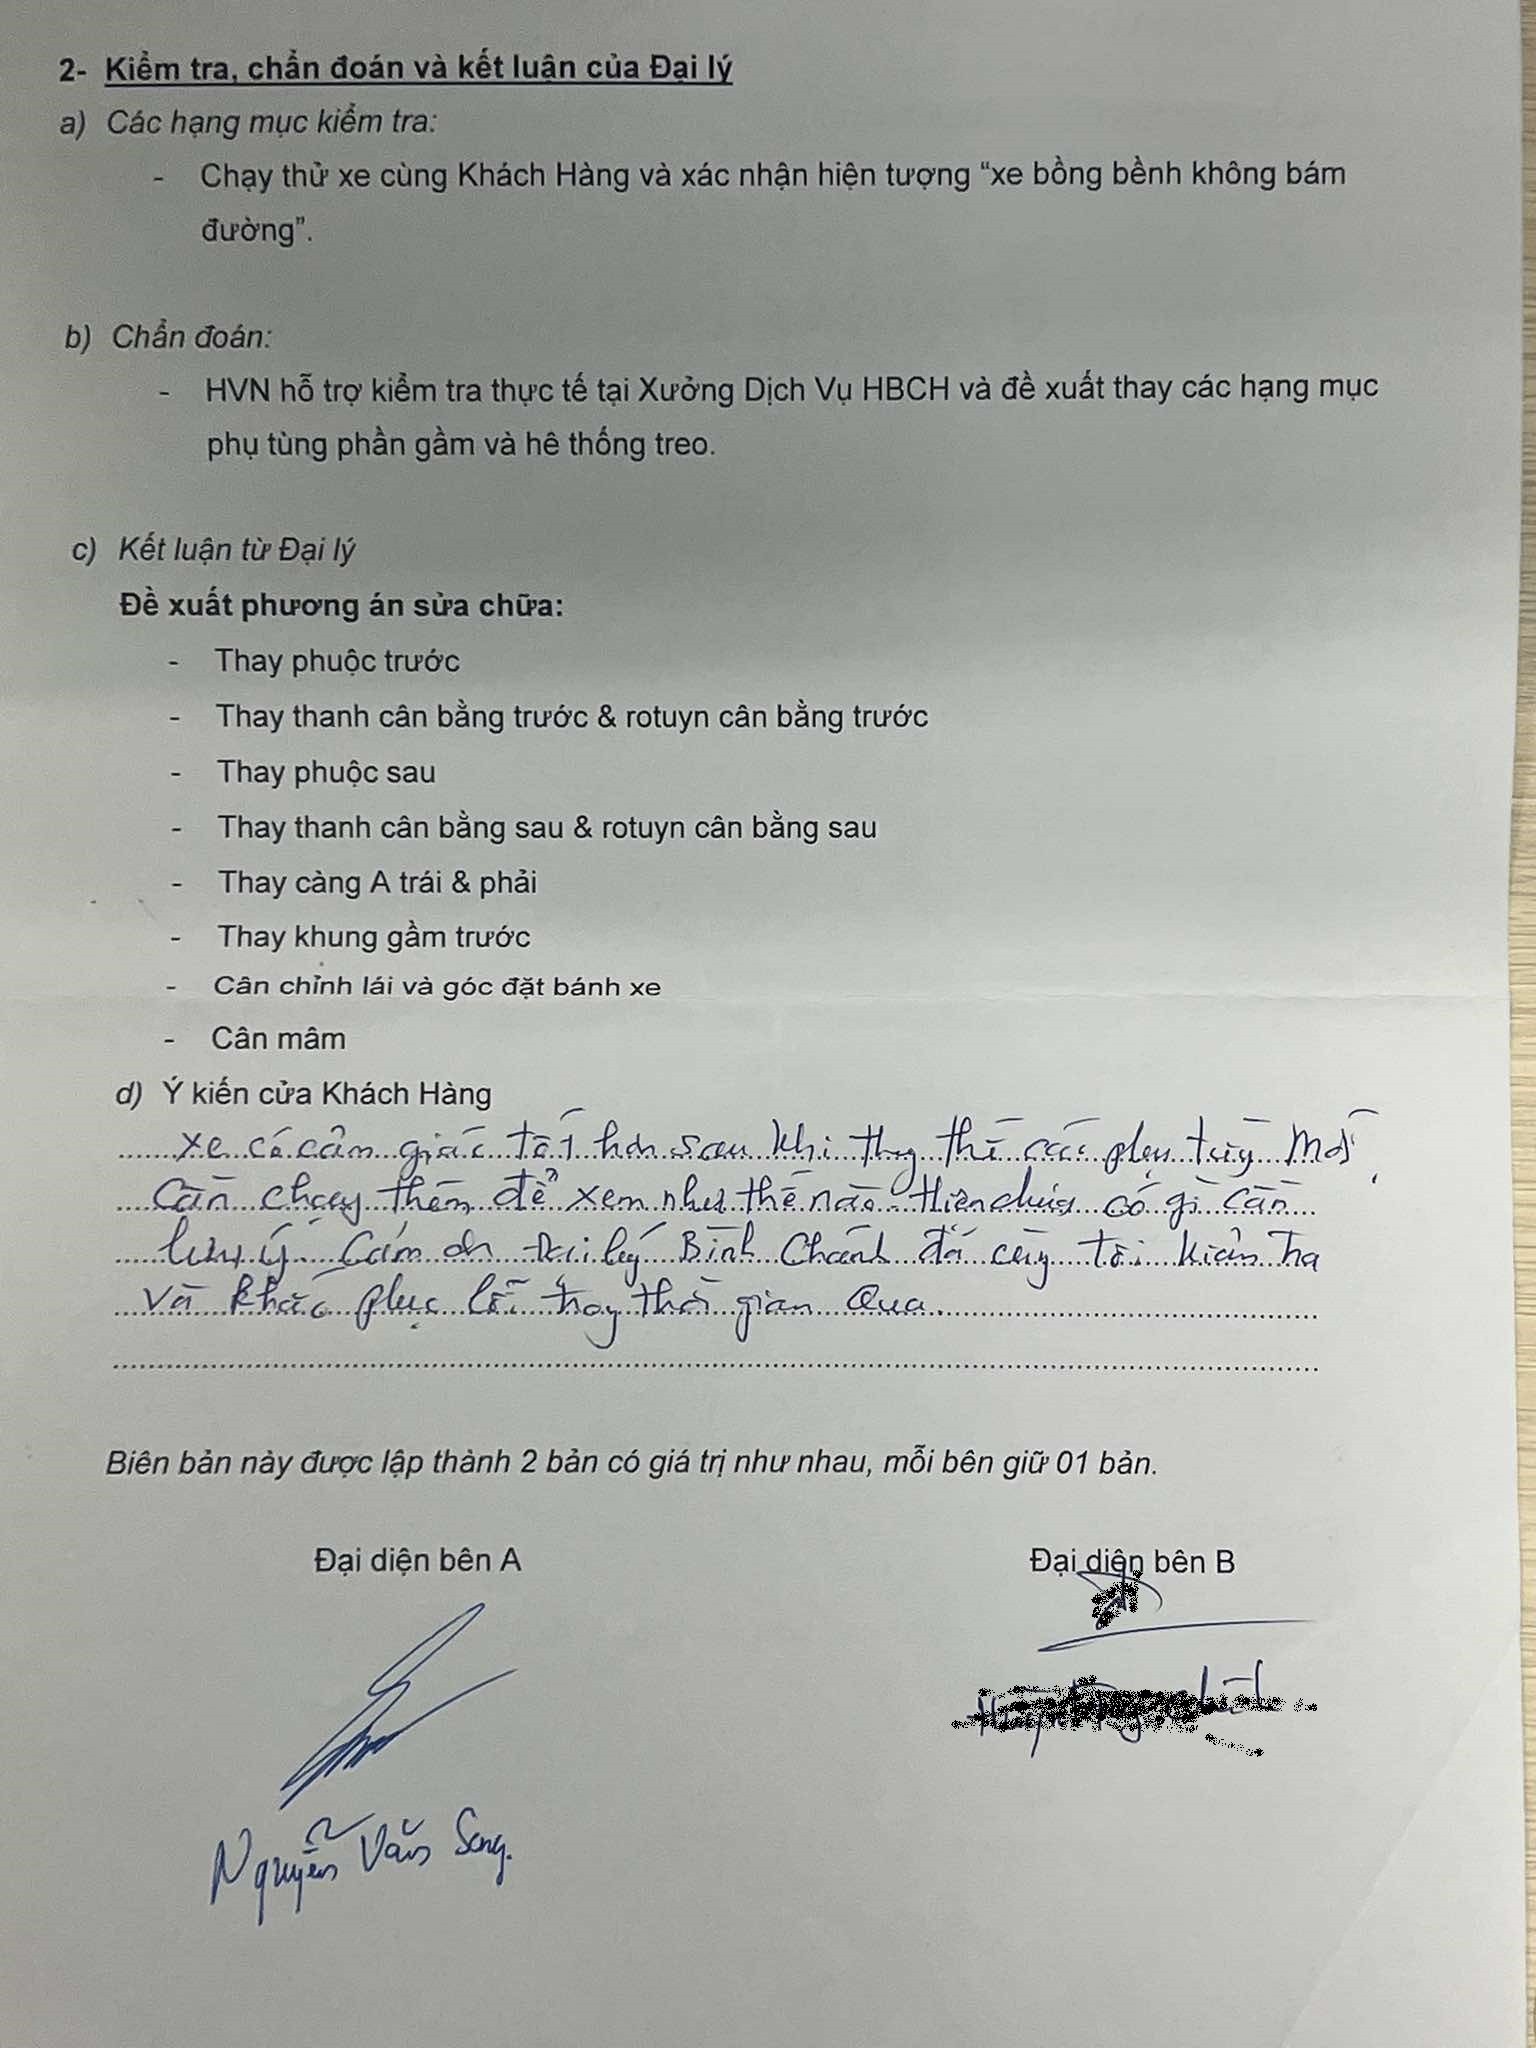 2- Kiểm tra, chẩn đoán và kết luận của Đại lý
a) Các hạng mục kiểm tra:
- Chạy thử xe cùng Khách Hàng và xác nhận hiện tượng “xe bồng bềnh không bám
đường”.
b) Chẩn đoán:
- HVN hỗ trợ kiểm tra thực tế tại Xưởng Dịch Vụ HBCH và đề xuất thay các hạng mục
phụ tùng phần gầm và hê thống treo.
c) Kết luận từ Đại lý
Đề xuất phương án sửa chữa:
- Thay phuộc trước
- Thay thanh cân bằng trước & rotuyn cân bằng trước
- Thay phuộc sau
- Thay thanh cân bằng sau & rotuyn cân bằng sau
- Thay càng A trái & phải
- Thay khung gầm trước
- Cân chỉnh lái và góc đặt bánh xe
- Cân mâm
d) Ý kiến cửa Khách Hàng
Xe có cảm giác tốt hơn sau khi thay thế các phụ tùng mới,
Cần chạy thêm để xem như thế nào. Hiện chưa có gì cần
lưu ý. Cám ơn Đại lý Bình Chánh đã cùng tôi kiểm tra
và khắc phục lỗi trong thời gian qua.
Biên bản này được lập thành 2 bản có giá trị như nhau, mỗi bên giữ 01 bản.
Đại diện bên A
Đại diện bên B
Nguyễn Văn Song.